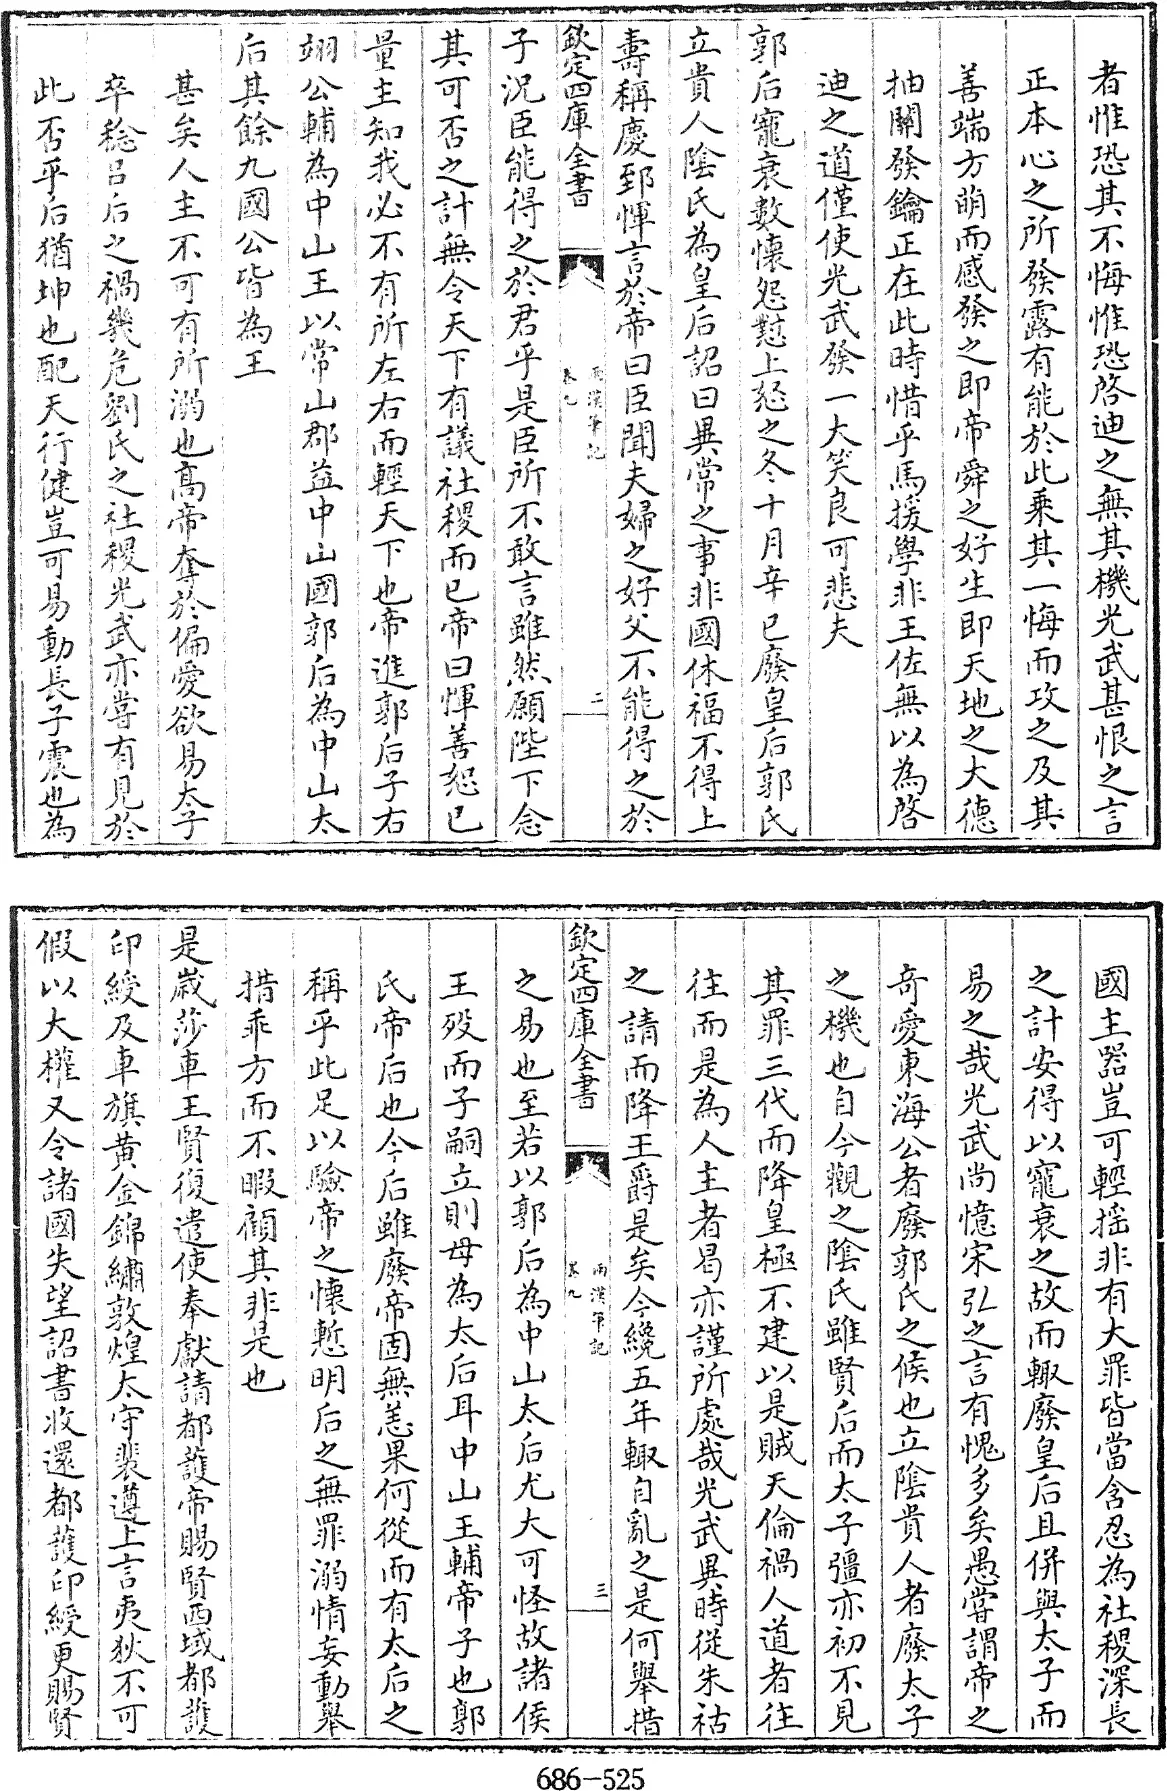 者惟恐其不悔惟恐啓迪之無其機光武甚恨之言
正本心之所發露有能於此乗其一悔而攻之及其
善端方萌而感發之即帝舜之好生即天地之大德
抽關發鑰正在此時惜乎馬援學非王佐無以為啓
迪之道僅使光武發一大笑良可悲夫
郭后寵衰數懷怨懟上怒之冬十月辛巳廢皇后郭氏
立貴人隂氏為皇后詔曰異常之事非國休福不得上
壽稱慶郅惲言於帝曰臣聞夫婦之好父不能得之於
欽定四庫全書
兩漢筆記
卷九
二
子況臣能得之於君乎是臣所不敢言雖然願陛下念
其可否之計無令天下有議社稷而已帝曰惲善恕已
量主知我必不有所左右而輕天下也帝進郭后子右
翊公輔為中山王以常山郡益中山國郭后為中山太
后其餘九國公皆為王
甚矣人主不可有所溺也髙帝奪於偏愛欲易太子
卒稔吕后之禍幾危劉氏之社稷光武亦嘗有見於
此否乎后猶坤也配天行健豈可易動長子震也為
國主器豈可輕揺非有大罪皆當含忍為社稷深長
之計安得以寵衰之故而輙廢皇后且併與太子而
易之哉光武尚憶宋弘之言有愧多矣愚嘗謂帝之
奇愛東海公者廢郭氏之候也立隂貴人者廢太子
之機也自今觀之隂氏雖賢后而太子彊亦初不見
其罪三代而降皇極不建以是賊天倫禍人道者往
往而是為人主者曷亦謹所處哉光武異時從朱祜
之請而降王爵是矣今纔五年輙自亂之是何舉措
欽定四庫全書
兩漢筆記
卷九
三
之易也至若以郭后為中山太后尤大可怪故諸侯
王殁而子嗣立則母為太后耳中山王輔帝子也郭
氏帝后也今后雖廢帝固無恙果何從而有太后之
稱乎此足以驗帝之懷慙明后之無罪溺情妄動舉
措乖方而不暇顧其非是也
是嵗莎車王賢復遣使奉獻請都護帝賜賢西域都護
印綬及車旗黄金錦繡敦煌太守裴遵上言夷狄不可
假以大權又令諸國失望詔書收還都護印綬更賜賢
686-525